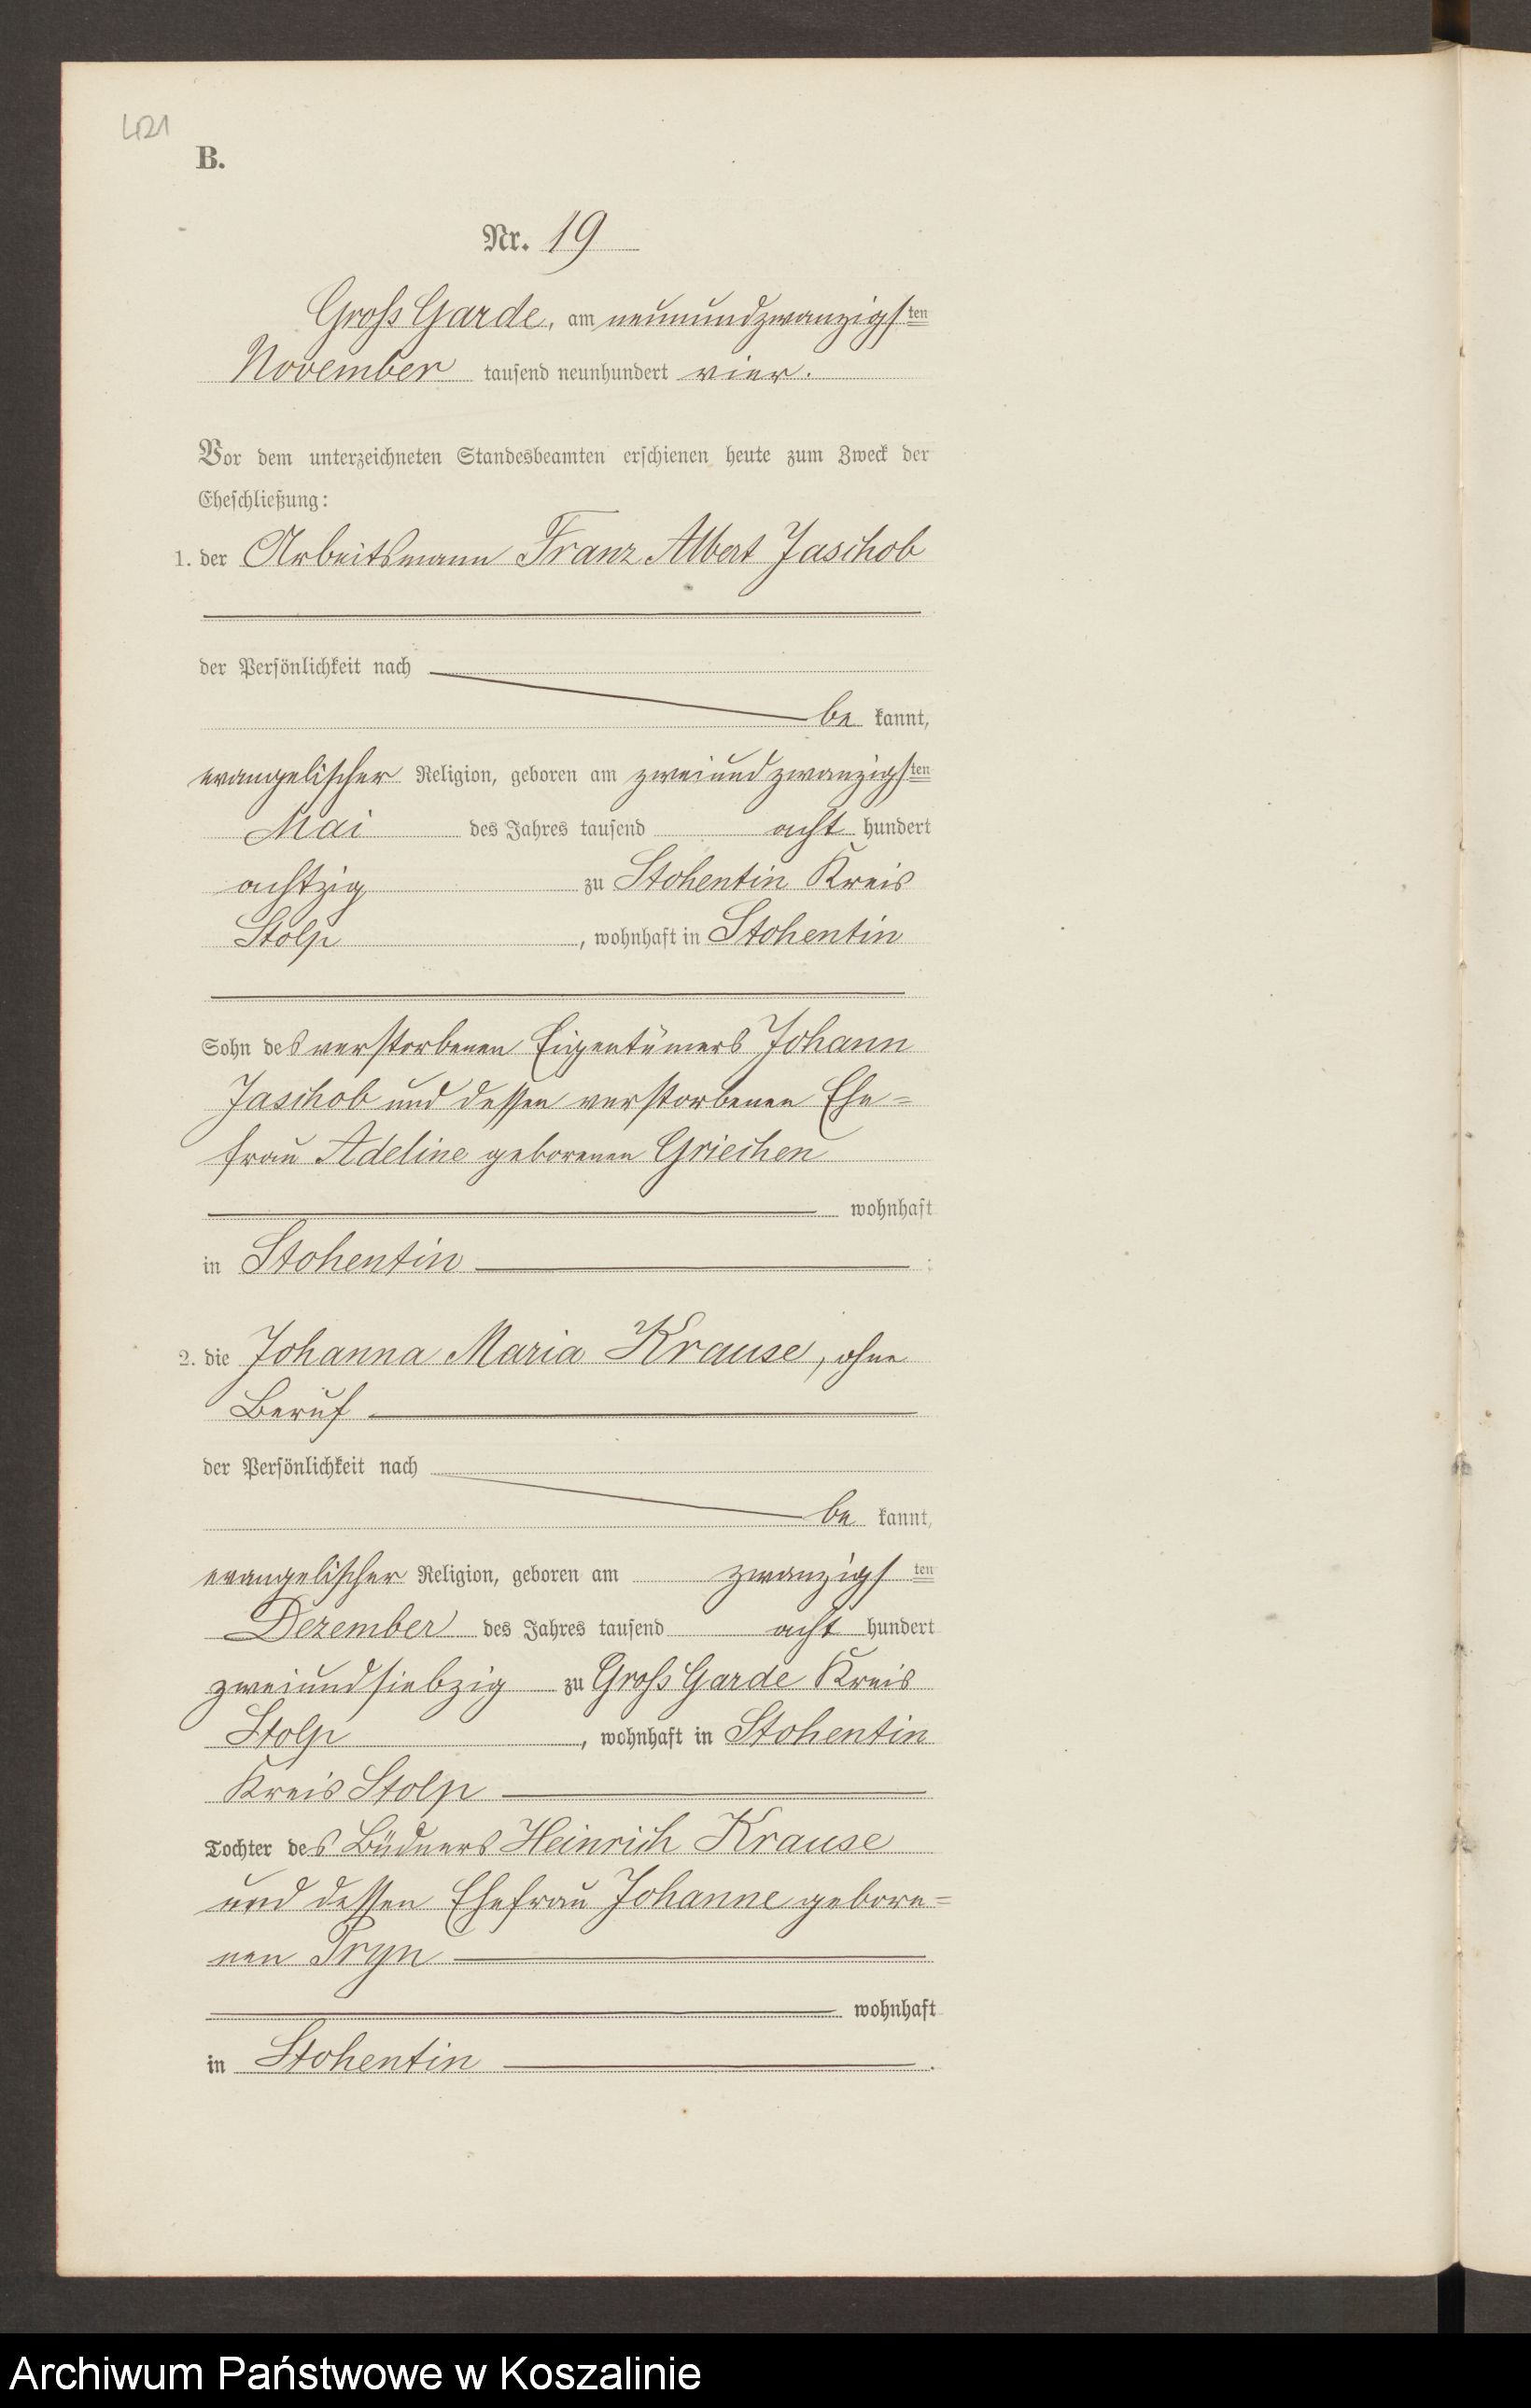 421
B.
Nr. 19
Gross Garde, am neunundzwanzigsten
November tausend neunhundert vier.
Vor dem unterzeichneten Standesbeamten erschienen heute zum Zweck der
Eheschließung:
1. der Arbeitsmann Franz Albert Jaschob
der Persönlichkeit nach
be kannt,
evangelischer Religion, geboren am zweiundzwanzigsten
Mai des Jahres tausend acht hundert
achtzig zu Stohentin Kreis
Stolp, wohnhaft in Stohentin
Sohn des verstorbenen Eigentümers Johann
Jaschob und dessen verstorbenen Ehe=
frau Adeline geborenen Griechen
wohnhaft
in Stohentin :
2. die Johanna Maria Krause, ohne
Beruf
der Persönlichkeit nach
be kannt,
evangelischer Religion, geboren am zwanzigsten
Dezember des Jahres tausend acht hundert
zweiundsiebzig zu Gross Garde Kreis
Stolp, wohnhaft in Stohentin
Kreis Stolp
Tochter des Büdners Heinrich Krause
und dessen Ehefrau Johanne gebore=
nen Pryn
wohnhaft
in Stohentin .
Archiwum Państwowe w Koszalinie